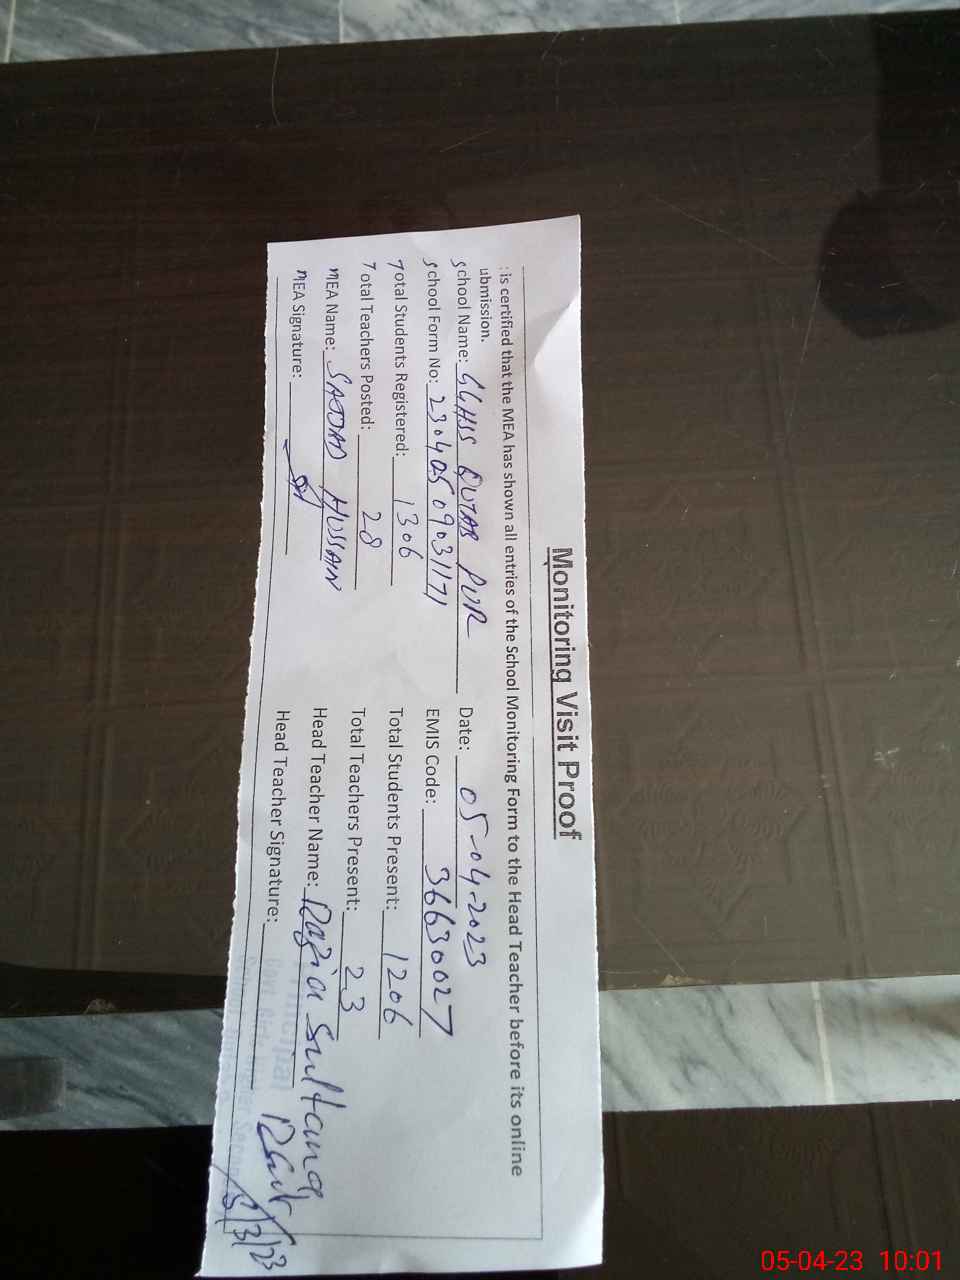 Monitoring Visit Proof
is certified that the MEA has shown all entries of the School Monitoring Form to the Head Teacher before its online
ubmission.
School Name: GGHSS QUTAB PUR Date: 05-04-2023
School Form No: 23040509031171 EMIS Code: 36630027
Total Students Registered: 1306 Total Students Present: 1206
Total Teachers Posted: 28 Total Teachers Present: 23
MEA Name: SAJJAD HUSSAIN Head Teacher Name: Razia Sultana
MEA Signature: Head Teacher Signature:
Principal
Govt. Girls Higher Secon
5/3/23
05-04-23 10:01